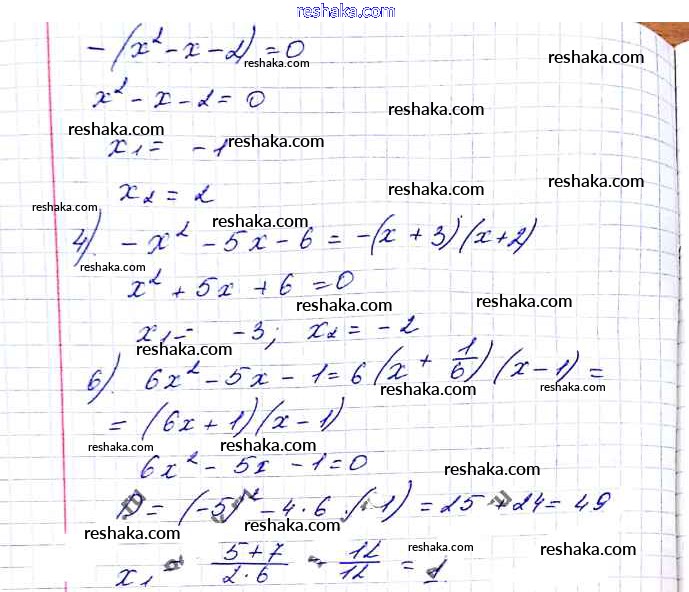 reshaka.com
-(x² - x - 2) = 0
reshaka.com
reshaka.com
x² - x - 2 = 0
reshaka.com
reshaka.com
reshaka.com
reshaka.com
x₁ = -1
reshaka.com
reshaka.com
x₂ = 2
reshaka.com
reshaka.com
4) -x² - 5x - 6 = -(x + 3)(x + 2)
reshaka.com
reshaka.com
x² + 5x + 6 = 0
reshaka.com
reshaka.com
x₁ = -3; x₂ = -2
reshaka.com
6). 6x² - 5x - 1 = 6(x + 1/6)(x - 1) =
reshaka.com
reshaka.com
= (6x + 1)(x - 1)
reshaka.com
reshaka.com
reshaka.com
6x² - 5x - 1 = 0
reshaka.com
D = (-5)² - 4·6·(-1) = 25 + 24 = 49
reshaka.com
reshaka.com
reshaka.com
reshaka.com
x₁ = (5+7)/(2·6) = 12/12 = 1